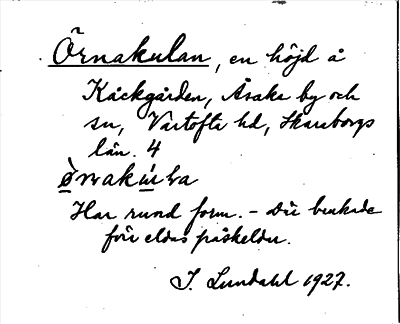 Örnakulan, en höjd å
Käckgården, Åsaka by och
sn, Vartofta hd, Skaraborgs
län. 4
Har rund form. – Där brukade
förr eldas påskeldar.
J. Lundahl 1927.